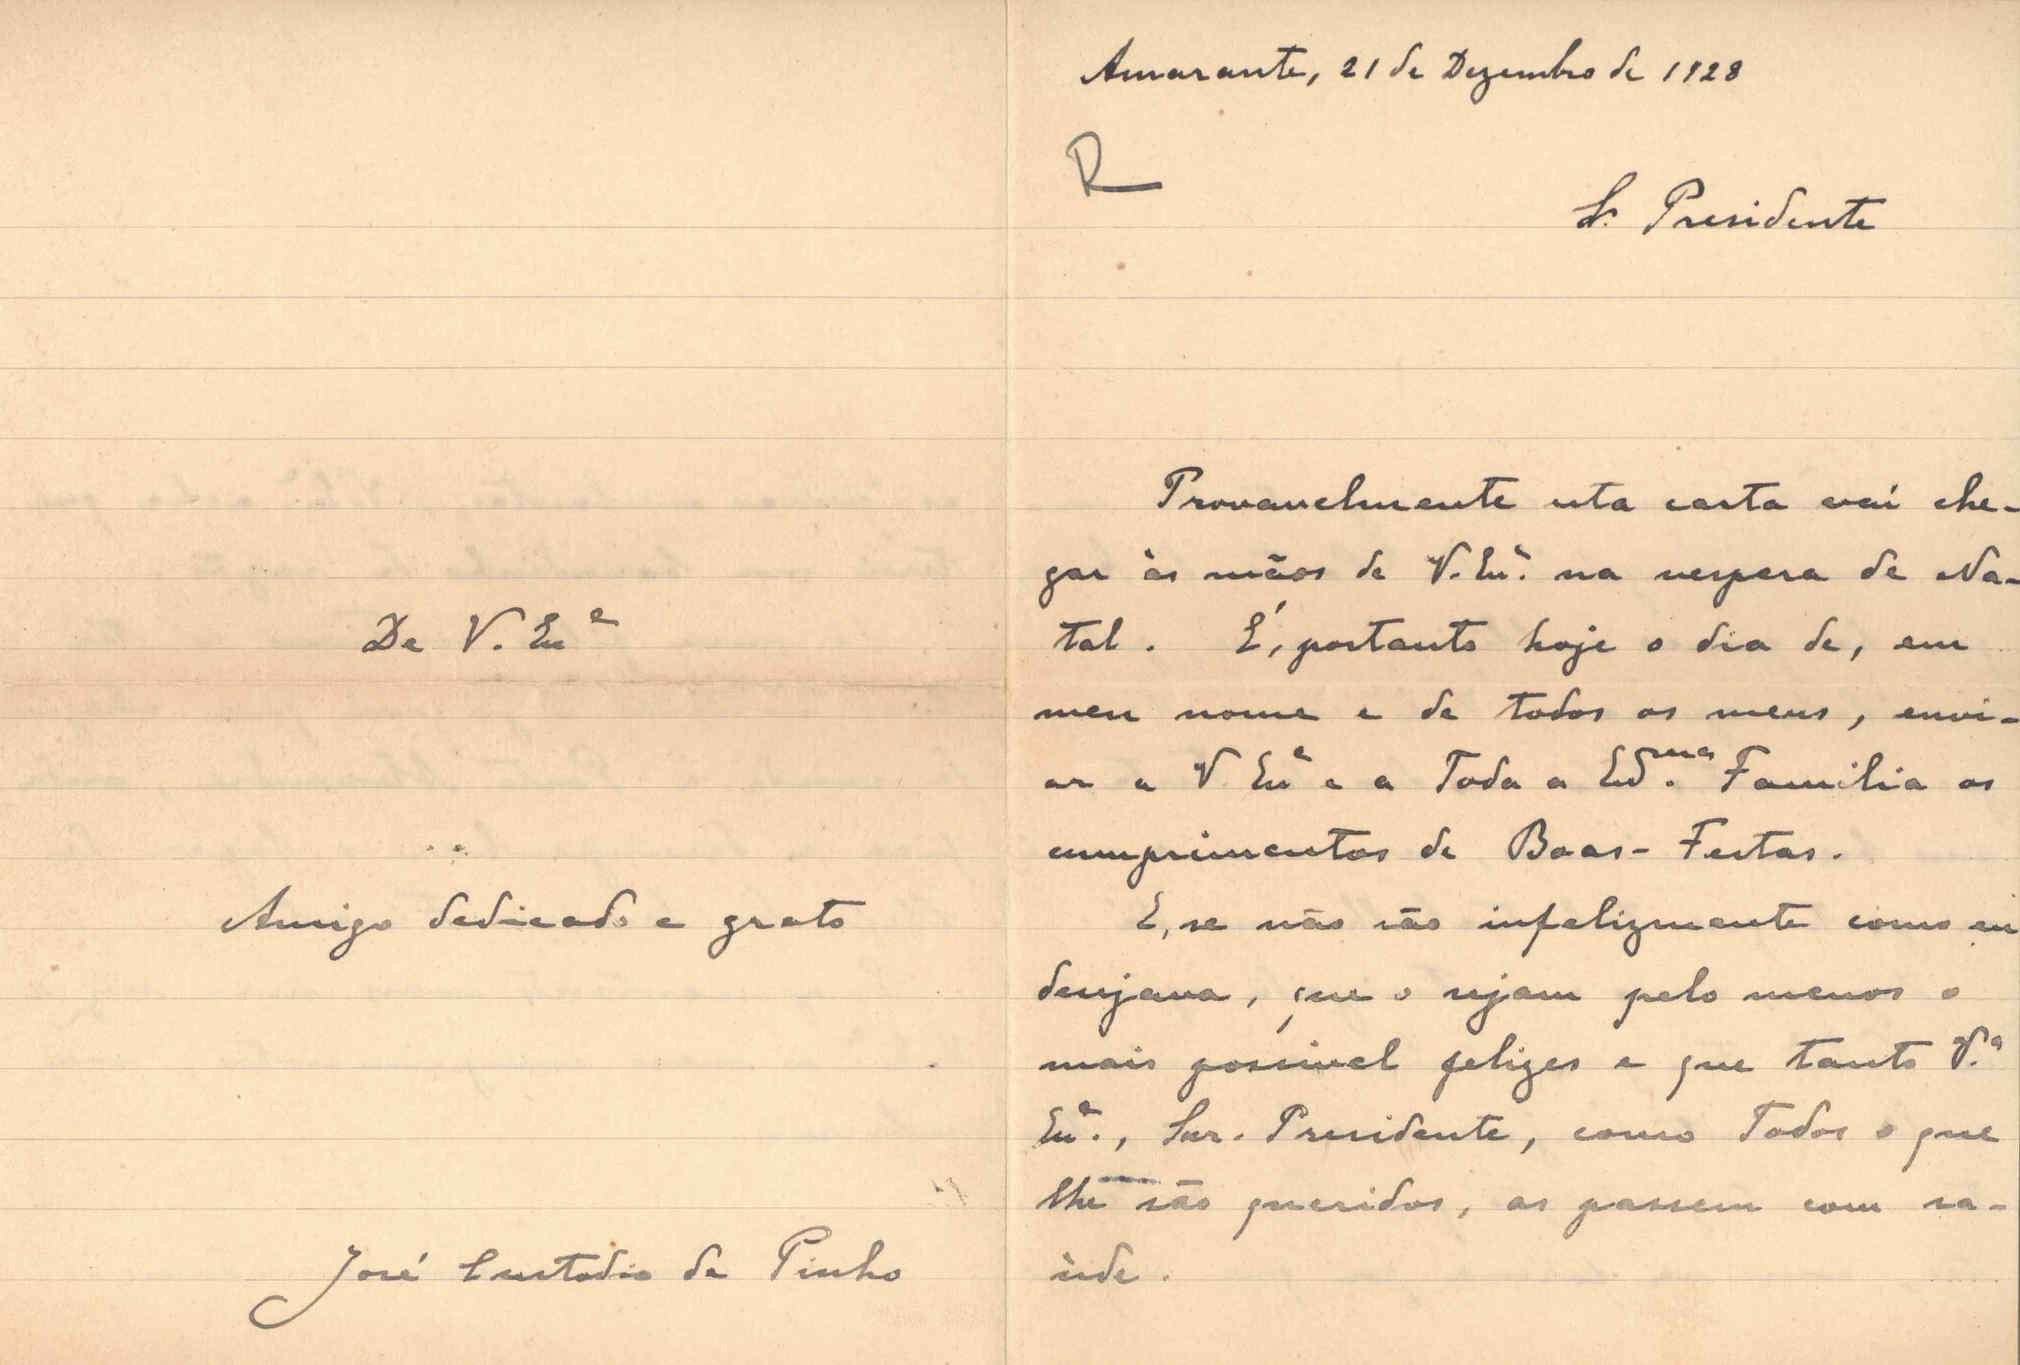 Amarante, 21 de Dezembro de 1928
R
Sr. Presidente
Provavelmente esta carta vai che-
gar às mãos de V. Exª. na vespera de Na-
tal. É, portanto hoje o dia de, em
meu nome e de todos os meus, envi-
ar a V Exª e a Toda a Exma. Familia os
cumprimentos de Boas-Festas.
E, se não são infelizmente como eu
desejava, que o sejam pelo menos o
mais possível felizes e que tanto V.ª
Exª., Snr. Presidente, como Todos o que
lhe são queridos, as passem com sa-
ùde.
De V. Exª
Amigo dedicado e grato
José Custodio de Pinho